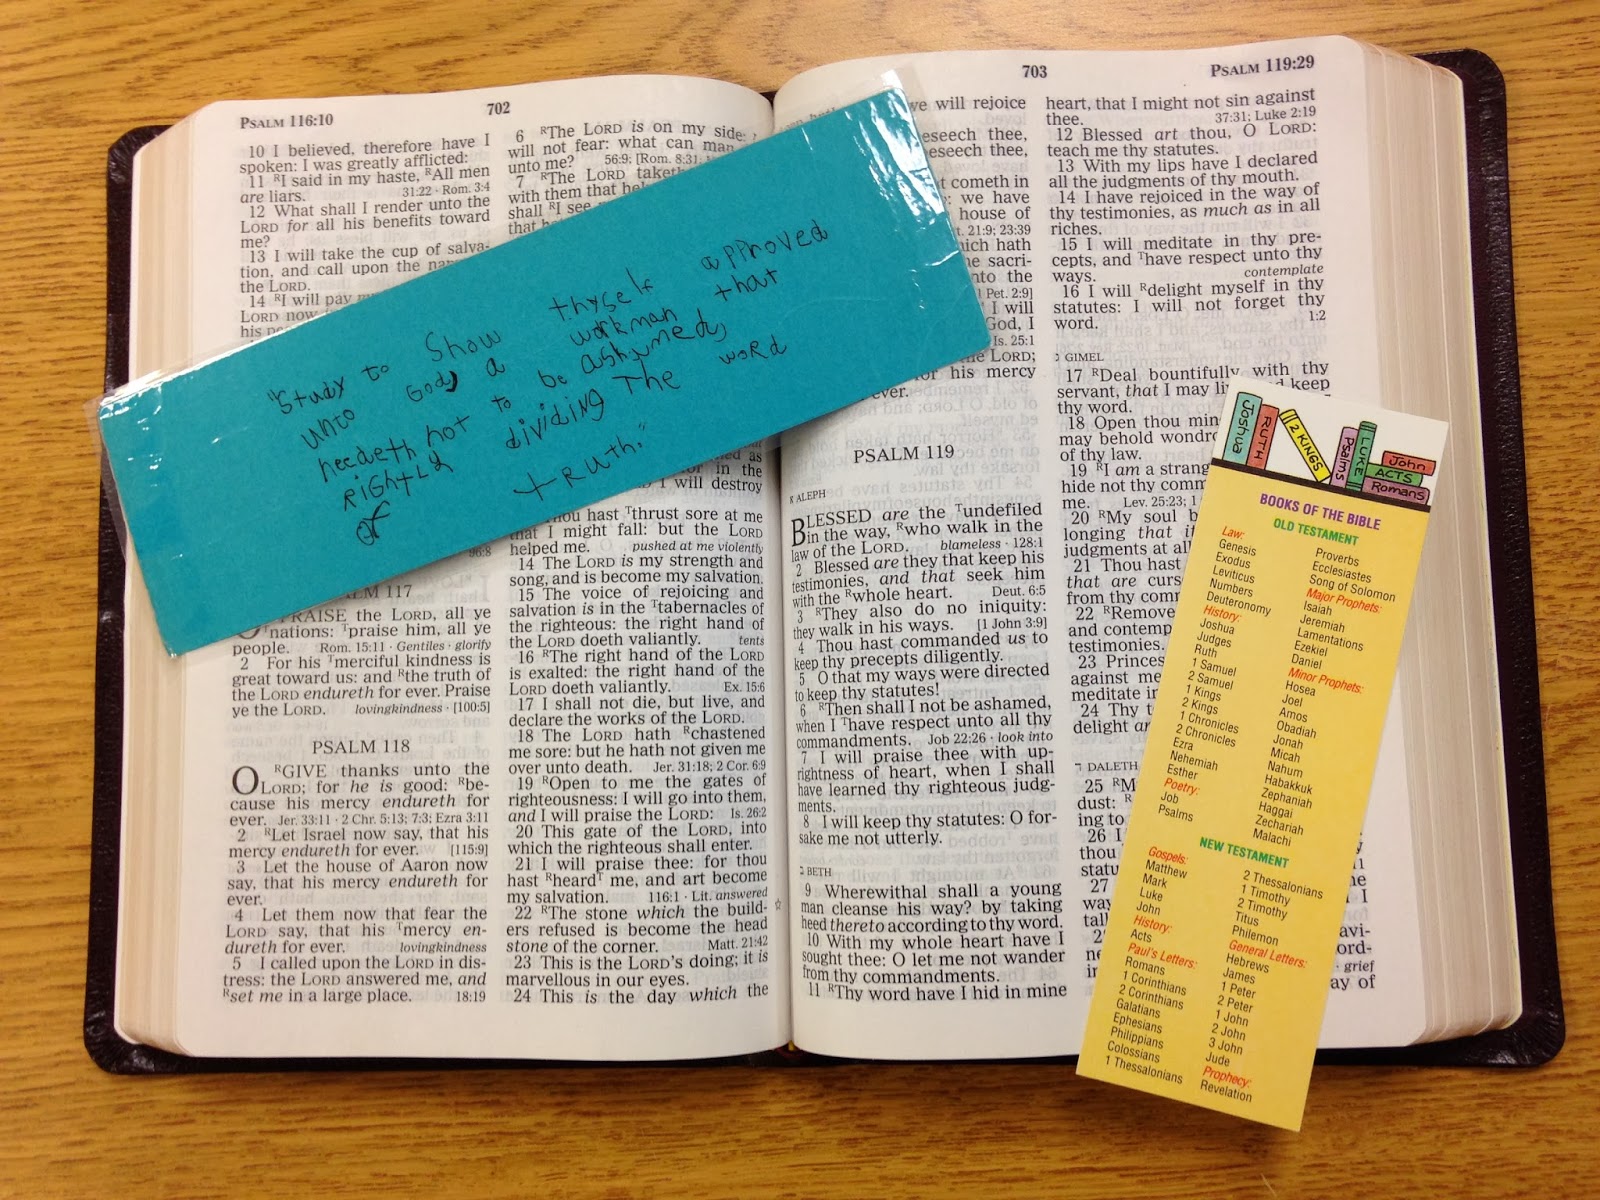 PSALM 116:10
702
10 I believed, therefore have I
spoken: I was greatly afflicted:
11 RI said in my haste, RAll men
are liars. 31:22 · Rom. 3:4
12 What shall I render unto the
LORD for all his benefits toward
me?
13 I will take the cup of salva-
tion, and call upon the
the LORD.
14 RI will pay
LORD now
his
117
PRAISE the LORD, all ye
Tnations: Tpraise him, all ye
people. Rom. 15:11 · Gentiles · glorify
2 For his Tmerciful kindness is
great toward us: and Rthe truth of
the LORD endureth for ever. Praise
ye the LORD. lovingkindness · [100:5]
PSALM 118
O RGIVE thanks unto the
LORD; for he is good: Rbe-
cause his mercy endureth for
ever. Jer. 33:11 · 2 Chr. 5:13; 7:3; Ezra 3:11
2 RLet Israel now say, that his
mercy endureth for ever. [115:9]
3 Let the house of Aaron now
say, that his mercy endureth for
ever.
4 Let them now that fear the
LORD say, that his Tmercy en-
dureth for ever. lovingkindness
5 I called upon the LORD in dis-
tress: the LORD answered me, and
Rset me in a large place. 18:19
6 RThe LORD is on my side;
will not fear: what can man
unto me? 56:9; [Rom. 8:31
7 RThe LORD taketh
with them that
shall RI see
that
as
in the
I will destroy
hou hast Tthrust sore at me
that I might fall: but the LORD
helped me. pushed at me violently
14 The LORD is my strength and
song, and is become my salvation.
15 The voice of rejoicing and
salvation is in the Ttabernacles of
the righteous: the right hand of
the LORD doeth valiantly. tents
16 RThe right hand of the LORD
is exalted: the right hand of the
LORD doeth valiantly. Ex. 15:6
17 I shall not die, but live, and
declare the works of the LORD.
18 The LORD hath Rchastened
me sore: but he hath not given me
over unto death. Jer. 31:18; 2 Cor. 6:9
19 ROpen to me the gates of
righteousness: I will go into them,
and I will praise the LORD: Is. 26:2
20 This gate of the LORD, into
which the righteous shall enter.
21 I will praise thee: for thou
hast RheardT me, and art become
my salvation. 116:1 · Lit. answered
22 RThe stone which the build-
ers refused is become the head
stone of the corner. Matt. 21:42
23 This is the LORD's doing; it is
marvellous in our eyes.
24 This is the day which the
"Study to Show thyself approved
unto God, a workman that
needeth not to be ashamed,
Rightly dividing The word
of tRuth."
703
PSALM 119:29
we will rejoice
beseech thee,
beseech thee,
cometh in
we have
house of
21:9; 23:39
which hath
sacri-
unto the
1 Pet. 2:9]
I will
God, I
Is. 25:1
the LORD;
for his mercy
ever.
PSALM 119
א ALEPH
BLESSED are the Tundefiled
in the way, Rwho walk in the
law of the LORD. blameless · 128:1
2 Blessed are they that keep his
testimonies, and that seek him
with the Rwhole heart. Deut. 6:5
3 RThey also do no iniquity:
they walk in his ways. [1 John 3:9]
4 Thou hast commanded us to
keep thy precepts diligently.
5 O that my ways were directed
to keep thy statutes!
6 RThen shall I not be ashamed,
when I Thave respect unto all thy
commandments. Job 22:26 · look into
7 I will praise thee with up-
rightness of heart, when I shall
have learned thy righteous judg-
ments.
8 I will keep thy statutes: O for-
sake me not utterly.
ב BETH
9 Wherewithal shall a young
man cleanse his way? by taking
heed thereto according to thy word.
10 With my whole heart have I
sought thee: O let me not wander
from thy commandments.
11 RThy word have I hid in mine
heart, that I might not sin against
thee. 37:31; Luke 2:19
12 Blessed art thou, O LORD:
teach me thy statutes.
13 With my lips have I declared
all the judgments of thy mouth.
14 I have rejoiced in the way of
thy testimonies, as much as in all
riches.
15 I will meditate in thy pre-
cepts, and Thave respect unto thy
ways. contemplate
16 I will Rdelight myself in thy
statutes: I will not forget thy
word. 1:2
ג GIMEL
17 RDeal bountifully with thy
servant, that I may keep
thy word.
18 Open thou
may behold
of thy law.
19 RI am a
hide not thy
Lev. 25:23;
20 RMy soul
longing that
judgments at
21 Thou hast
that are
from thy
22 RRemove
and
testimonies.
23
against me
meditate in
24 Thy
delight
ד DALETH
25
dust:
ing to
26 I
thou
27
way
· grief
way of
Joshua
RUTH
2 KINGS
Psalms
LUKE
John
ACTS
Romans
BOOKS OF THE BIBLE
OLD TESTAMENT
Law:
Genesis
Exodus
Leviticus
Numbers
Deuteronomy
History:
Joshua
Judges
Ruth
1 Samuel
2 Samuel
1 Kings
2 Kings
1 Chronicles
2 Chronicles
Ezra
Nehemiah
Esther
Poetry:
Job
Psalms
Proverbs
Ecclesiastes
Song of Solomon
Major Prophets:
Isaiah
Jeremiah
Lamentations
Ezekiel
Daniel
Minor Prophets:
Hosea
Joel
Amos
Obadiah
Jonah
Micah
Nahum
Habakkuk
Zephaniah
Haggai
Zechariah
Malachi
NEW TESTAMENT
Gospels:
Matthew
Mark
Luke
John
History:
Acts
Paul's Letters:
Romans
1 Corinthians
2 Corinthians
Galatians
Ephesians
Philippians
Colossians
1 Thessalonians
2 Thessalonians
1 Timothy
2 Timothy
Titus
Philemon
General Letters:
Hebrews
James
1 Peter
2 Peter
1 John
2 John
3 John
Jude
Prophecy:
Revelation